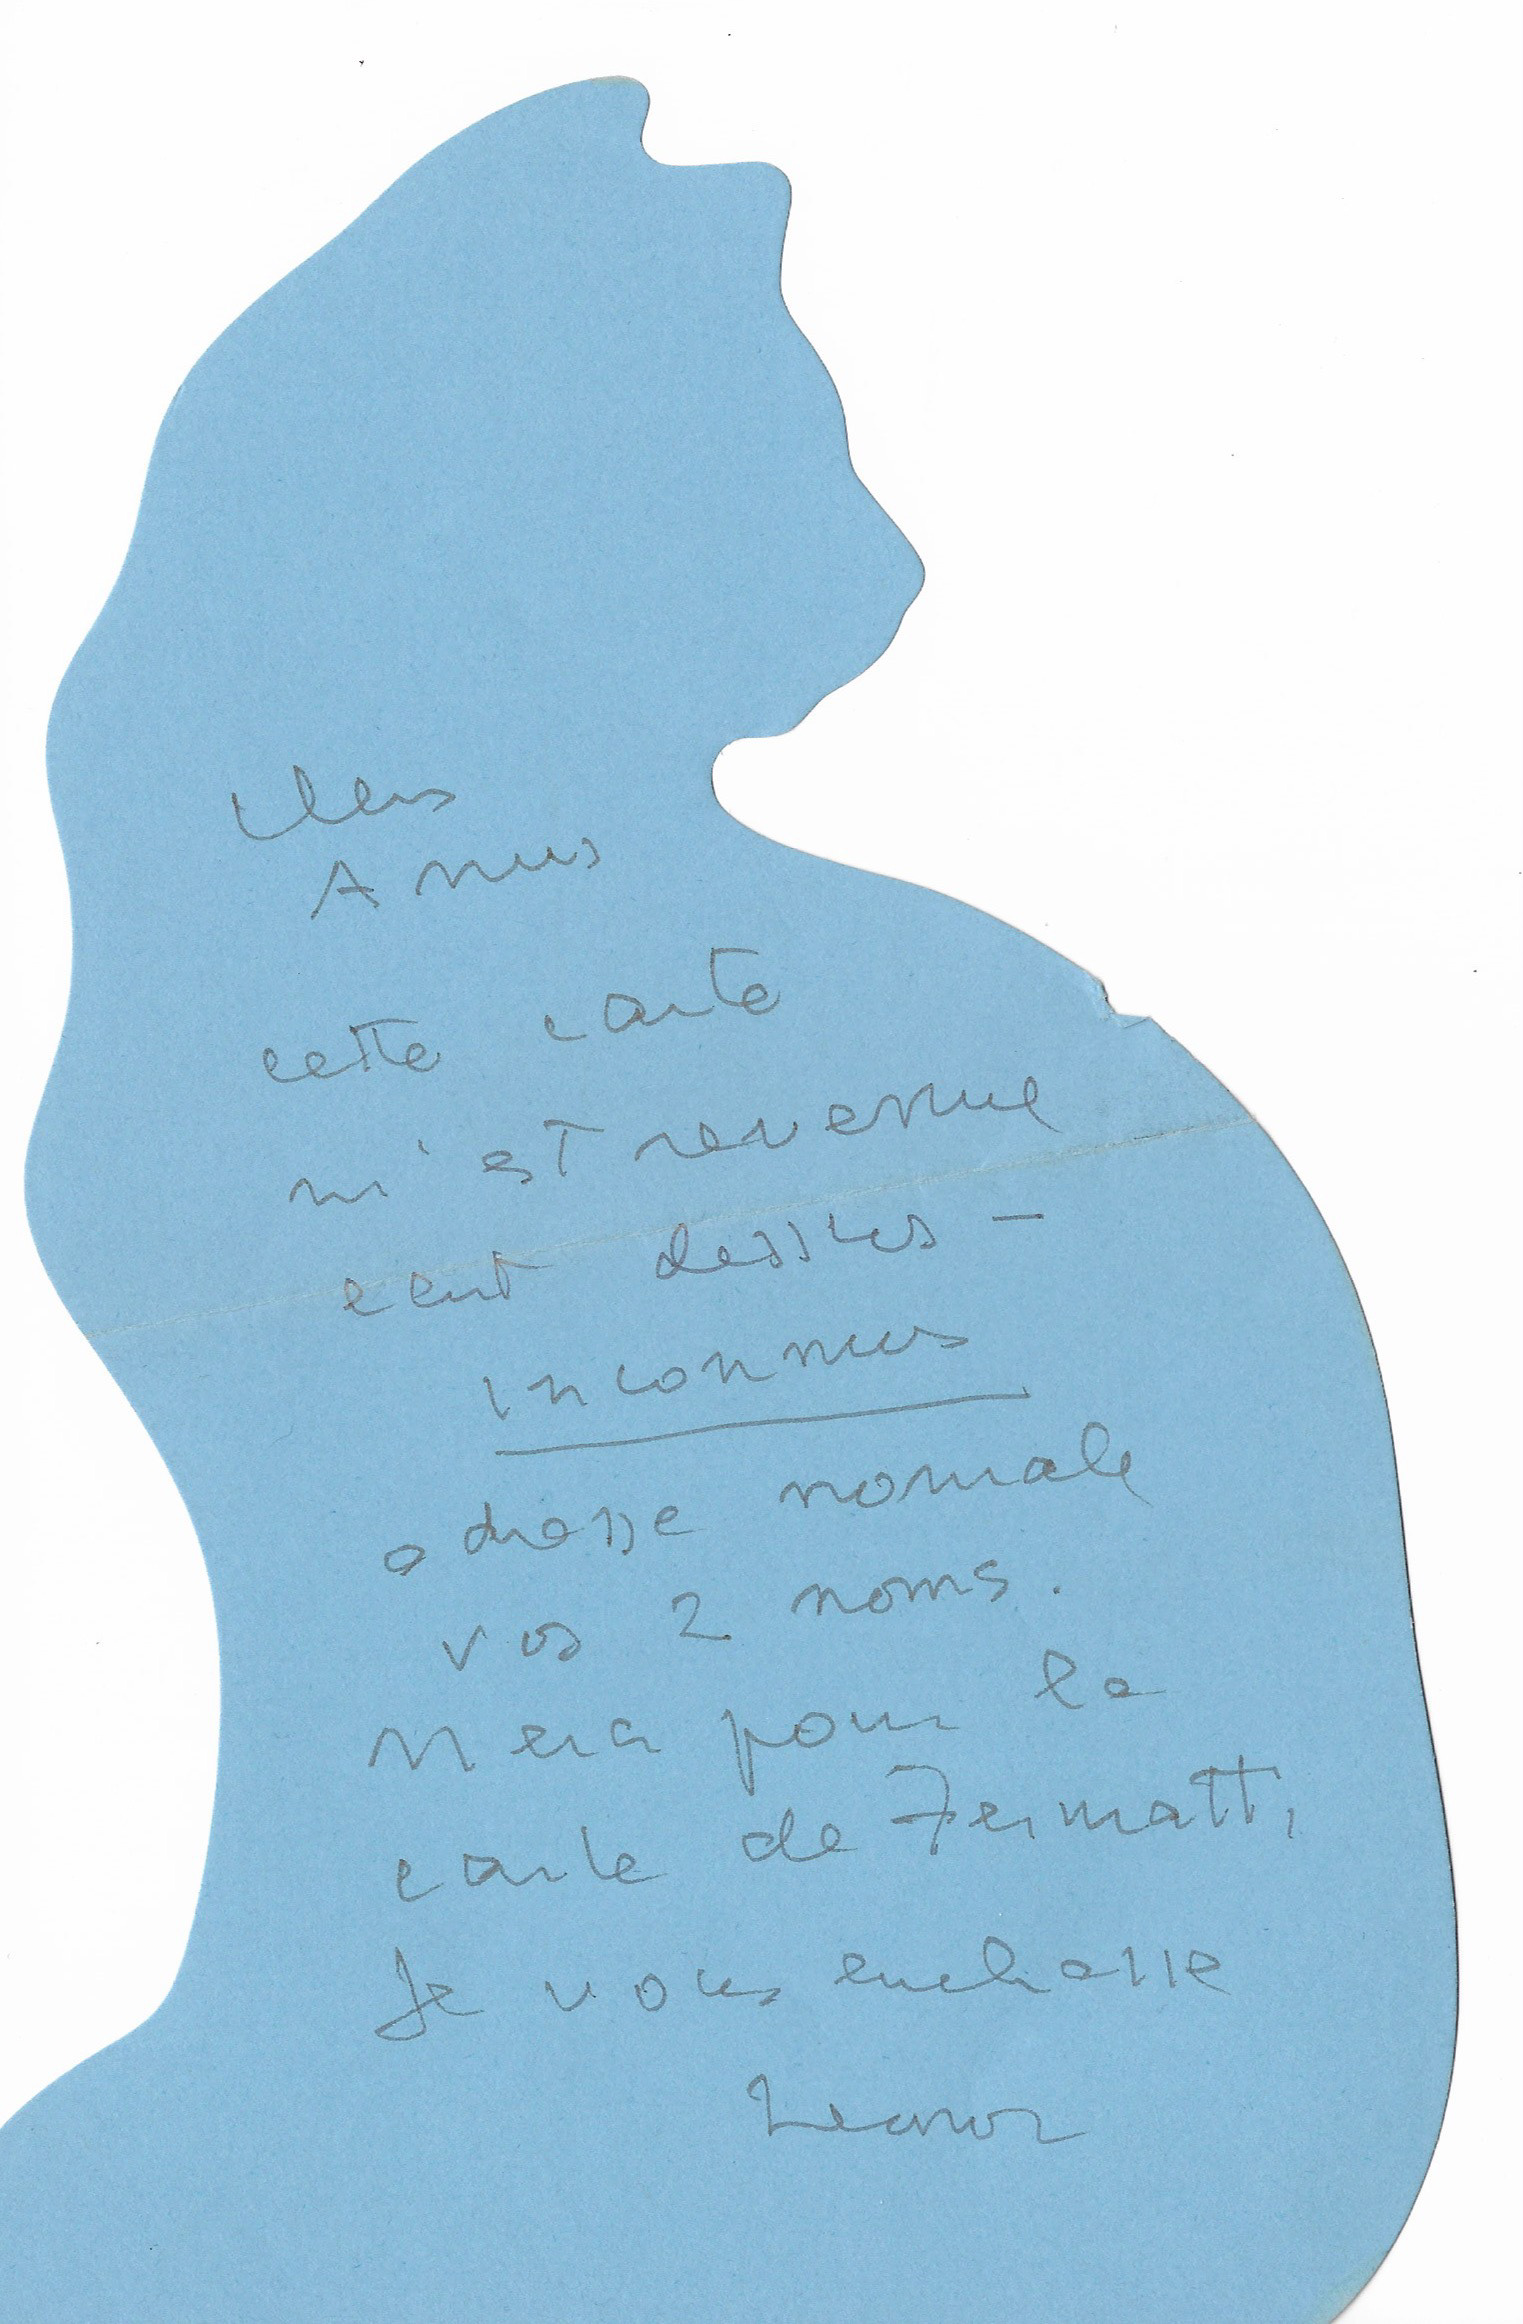 Chers
Amis
cette carte
m'est revenue
ecrit dessus –
inconnus
adresse normale
vos 2 noms.
Merci pour la
carte de Zermatt,
Je vous embrasse
Leonor